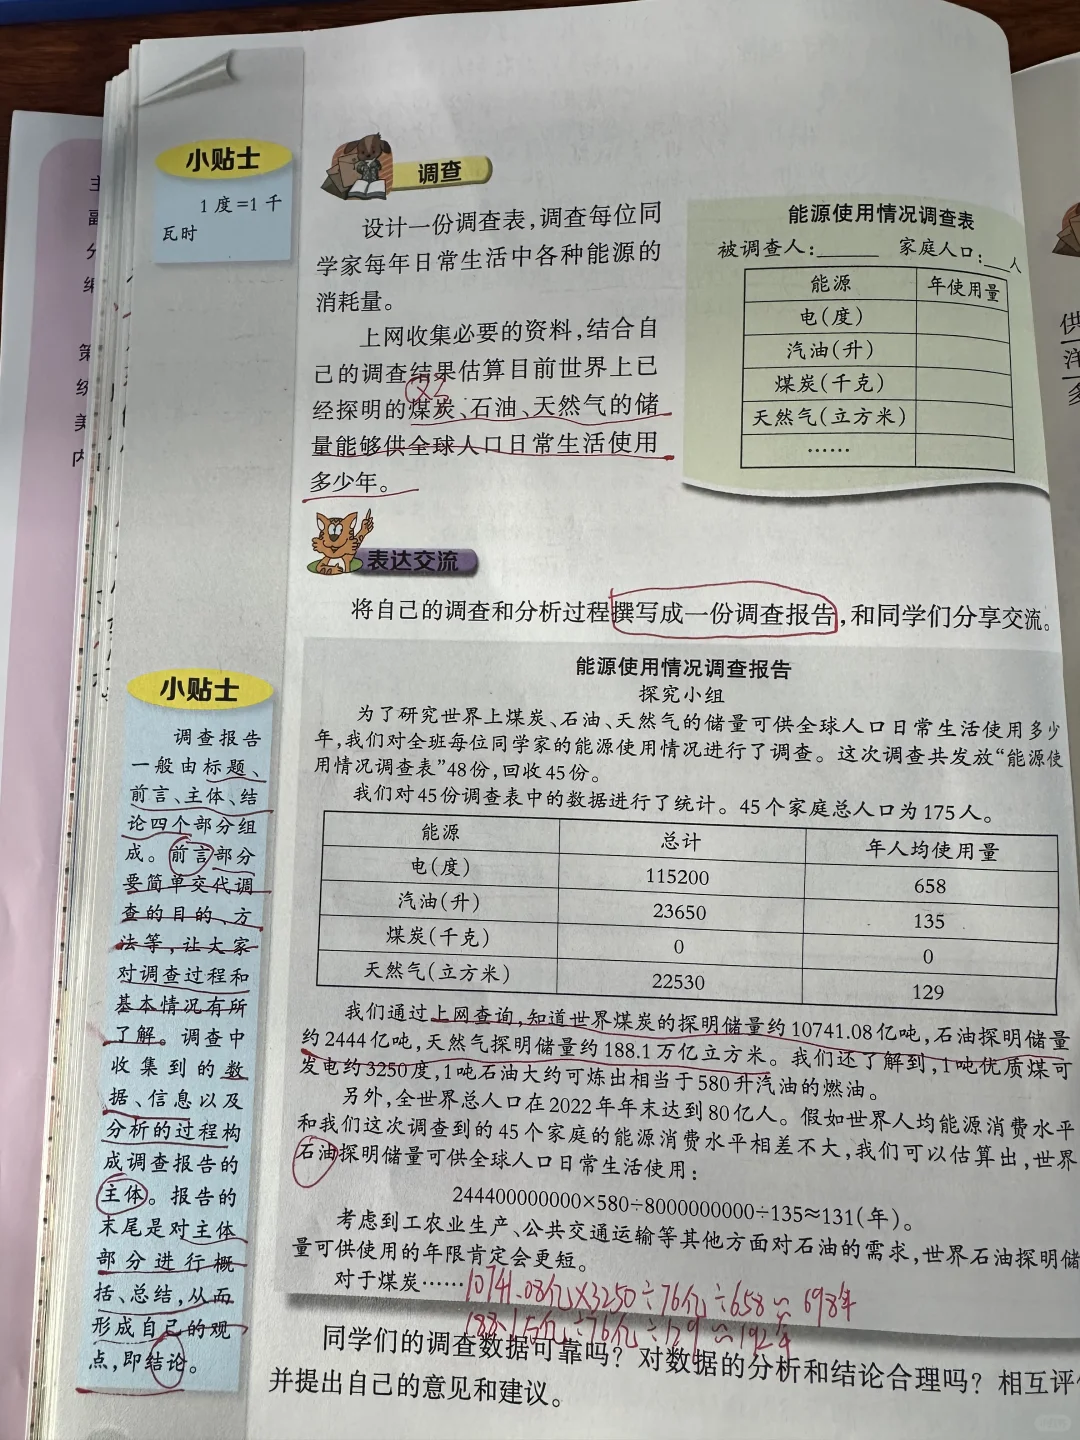 小贴士
1度=1千
瓦时
调查
设计一份调查表，调查每位同
学家每年日常生活中各种能源的
消耗量。
上网收集必要的资料，结合自
己的调查结果估算目前世界上已
经探明的煤炭、石油、天然气的储
量能够供全球人口日常生活使用
多少年。
能源使用情况调查表
被调查人：______ 家庭人口：___人
能源 年使用量
电(度)
汽油(升)
煤炭(千克)
天然气(立方米)
……
表达交流
将自己的调查和分析过程撰写成一份调查报告，和同学们分享交流。
小贴士
调查报告
一般由标题、
前言、主体、结
论四个部分组
成。前言部分
要简单交代调
查的目的、方
法等，让大家
对调查过程和
基本情况有所
了解。调查中
收集到的数
据、信息以及
分析的过程构
成调查报告的
主体。报告的
末尾是对主体
部分进行概
括、总结，从而
形成自己的观
点，即结论。
能源使用情况调查报告
探究小组
为了研究世界上煤炭、石油、天然气的储量可供全球人口日常生活使用多少
年，我们对全班每位同学家的能源使用情况进行了调查。这次调查共发放“能源使
用情况调查表”48份，回收45份。
我们对45份调查表中的数据进行了统计。45个家庭总人口为175人。
能源 总计 年人均使用量
电(度) 115200 658
汽油(升) 23650 135
煤炭(千克) 0 0
天然气(立方米) 22530 129
我们通过上网查询，知道世界煤炭的探明储量约10741.08亿吨，石油探明储量
约2444亿吨，天然气探明储量约188.1万亿立方米。我们还了解到，1吨优质煤可
发电约3250度，1吨石油大约可炼出相当于580升汽油的燃油。
另外，全世界总人口在2022年年末达到80亿人。假如世界人均能源消费水平
和我们这次调查到的45个家庭的能源消费水平相差不大，我们可以估算出，世界
石油探明储量可供全球人口日常生活使用：
244400000000×580÷8000000000÷135≈131(年)。
考虑到工农业生产、公共交通运输等其他方面对石油的需求，世界石油探明储
量可供使用的年限肯定会更短。
对于煤炭……10741.08亿×3250÷76亿÷658≈698年
÷76亿÷129≈192年
同学们的调查数据可靠吗？对数据的分析和结论合理吗？相互评
并提出自己的意见和建议。